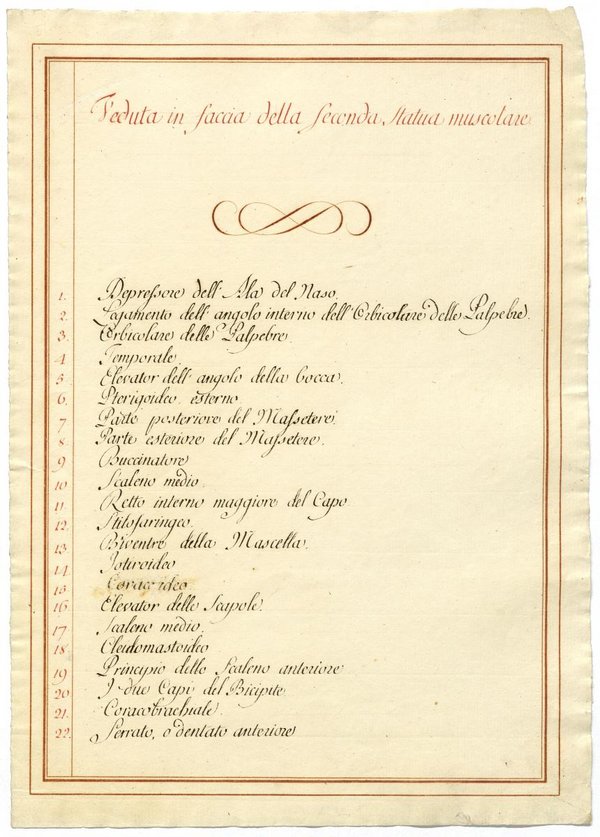 Veduta in faccia della seconda Statua muscolare
1. Depressore dell' Ala del Naso
2. Legamento dell' angolo interno dell' Orbicolare delle Palpebre.
3. Orbicolare delle Palpebre.
4 Temporale
5. Elevator dell' angolo della bocca.
6. Pterigoideo esterno
7 Parte posteriore del Massetere
8. Parte esteriore del Massetere.
9 Buccinatore
10 Scaleno medio.
11. Retto interno maggiore del Capo
12. Stilofaringeo.
13. Biventre della Mascella.
14 Jotiroideo
15 Coracoideo
16 Elevator delle Scapole.
17 Scaleno medio.
18. Cleidomastoideo
19 Principio dello Scaleno anteriore
20 I due Capi del Bicipite
21. Coracobrachiale.
22. Serrato, o dentato anteriore